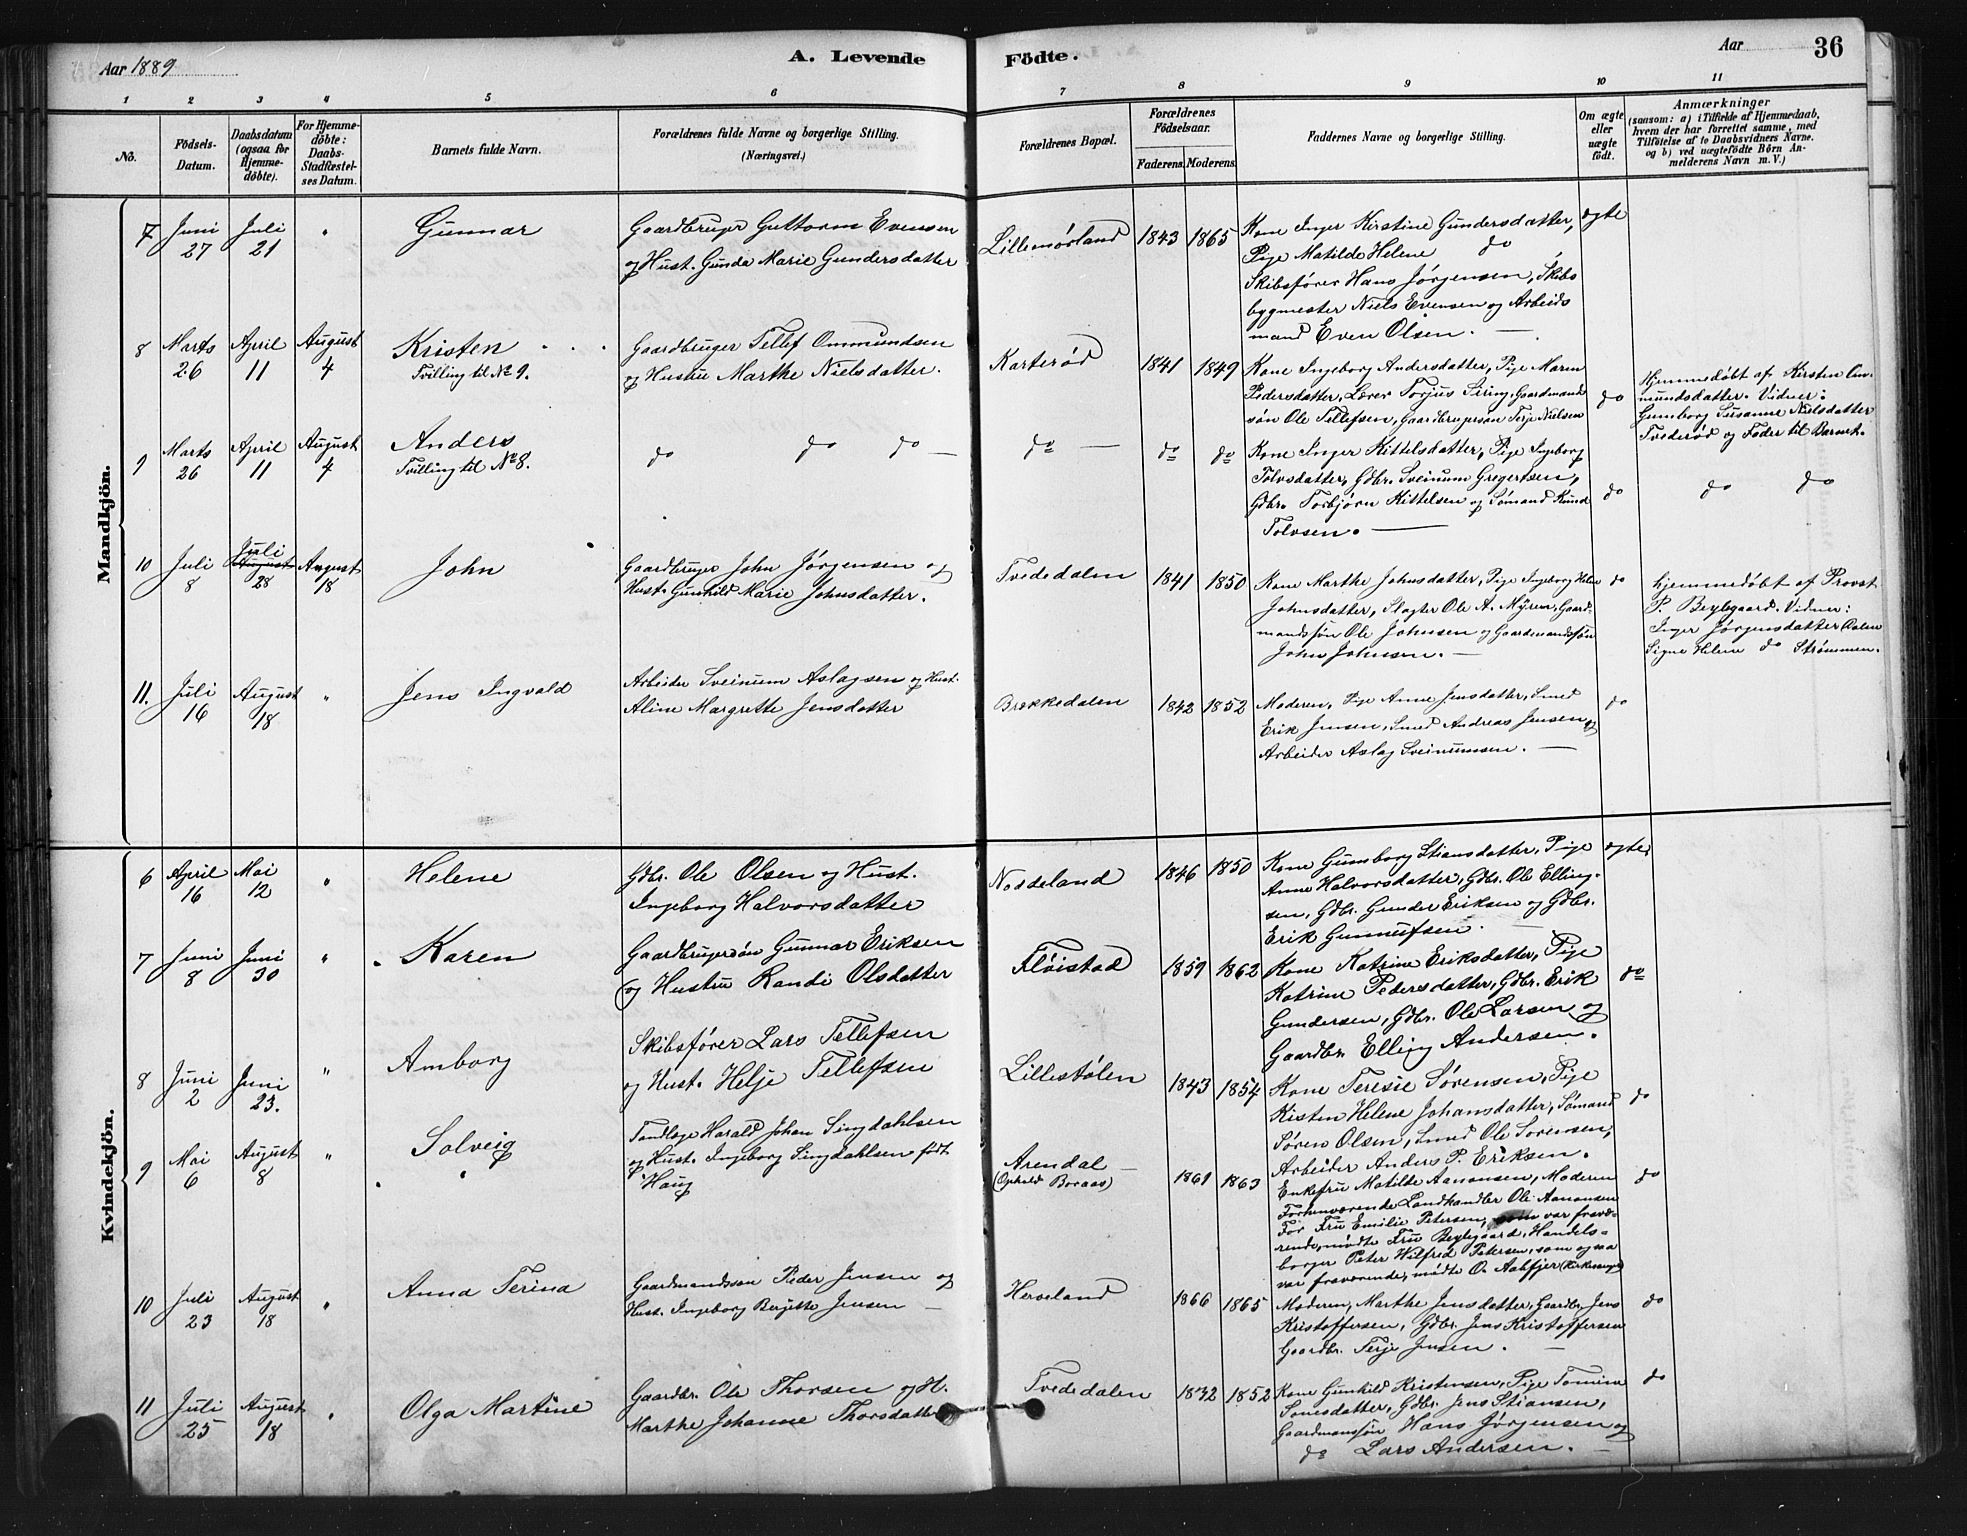 Aar 1889
A. Levende
Födte.
Aar
36
1 2 3 4 5 6 7 8 9 10 11
No.
Födsels-
Datum.
Daabsdatum
(ogsaa for
Hjemme-
döbte).
For Hjemme-
döbte:
Daabs-
Stadfæstel-
ses Datum.
Barnets fulde Navn.
Forældrenes fulde Navne og borgerlige Stilling.
(Næringsvei.)
Forældrenes Bopæl.
Forældrenes
Födselsaar.
Faderens. Moderens.
Faddernes Navne og borgerlige Stilling.
Om ægte
eller
uægte
födt.
Anmærkninger
(saasom: a) i Tilfælde af Hjemmedaab,
hvem der har forrettet samme, med
Tilföielse af to Daabsvidners Navne.
og b) ved uægtefödte Börn An-
melderens Navn m. V.)
Mandkjön.
7 Juni 27
Juli 21
"
Gunnar
Gaardbruger Guttorm Evensen
og Hust. Gunda Marie Gundersdatter
Lillemörland
1843 1865
Kone Inger Kirstine Gundersdatter,
Pige Matilde Helene do
Skibsförer Hans Jørgensen, Skibs
bygmester Niels Evensen og Arbeids
mand Even Olsen.
ægte
8 Marts 26
April 11
August 4
Kristen
Tvilling til No 9.
Gaardbruger Tellef Ommundsen
og Hustru Marthe Nielsdatter.
Karterød
1841 1849
Kone Ingeborg Andersdatter, Pige Maren
Pedersdatter, Lærer Torjus Siring, Gaardmand
søn Ole Tellefsen, Gaardbrugersøn Terje Nielsen
do
Hjemmedøbt af Kirsten Om-
mundsdatter. Vidner:
Gunborg Susanne Nielsdatter
Tvederød og Fader til Barnet.
9 Marts 26
April 11
August 4
Anders
Tvilling til No 8.
do do do
do
do do
Kone Inger Kittelsdatter, Pige Ingeborg
Tolvsdatter, Gdbr. Sveinum Gregertsen,
Gdbr. Torbjørn Kittelsen og Sømand Knud
Tolvsen.
do
do do
10 Juli 8
Juli
August 28
August 18
John
Gaardbruger John Jørgensen og
Hust. Gunhild Marie Johnsdatter.
Tvededalen
1841 1850
Kone Marthe Johnsdatter, Pige Ingeborg Helene
Johnsdatter, Slagter Ole A. Myren, Gaard-
mandssøn Ole Johnsen og Gaardmandssøn
John Johnsen.
do
Hjemmedøbt af Provst
P. Beylegaard. Vidner:
Inger Jørgensdatter Dalen
Signe Helene do Strømmen.
11. Juli 16
August 18
"
Jens Ingvald
Arbeider Sveinum Aslagsen og Hust.
Aline Margrethe Jensdatter
Brekkedalen
1842 1852
Moderen, Pige Anne Jensdatter, Smed
Erik Jensen, Smed Andreas Jensen og
Arbeider Aslag Sveinumsen.
do
Kvindekjön.
6 April 16
Mai 12
"
Helene
Gdbr. Ole Olsen og Hust.
Ingeborg Halvorsdatter
Noddeland
1846 1850
Kone Gunborg Stiansdatter, Pige
Anne Halvorsdatter, Gdbr. Ole Elling-
sen, Gdbr. Gunder Eriksen og Gdbr.
Erik Gunnufsen.
ægte
7 Juni 8
Juni 30
"
Karen
Gaardbrugersön Gunnar Eriksen
og Hustru Randi Olsdatter
Fløistad
1859 1862
Kone Katrine Eriksdatter, Pige
Katrine Pedersdatter, Gdbr. Erik
Gundersen, Gdbr. Ole Larsen og
Gaardbr. Elling Andersen.
do
8 Juni 2
Juni 23.
"
Amborg
Skibsfører Lars Tellefsen
og Hust. Helje Tellefsen
Lillestølen
1843 1854
Kone Teresie Sørensen, Pige
Kisten Helene Johansdatter, Sømand
Søren Olsen, Smed Ole Sorensen,
Arbeider Anders P. Eriksen.
do
9 Mai 6
August 8
"
Solveig
Tandlæge Harald Johan Singdahlsen
og Hust. Ingeborg Singdahlsen født
Haug
Arendal
(Ophold Boraas)
1861 1863
Enkefru Matilde Aanonsen, Moderen
Forhenværende Landhandler Ole Aanonsen
For Fru Emilie Petersen, som var fravæ-
rende, mødte Fru Beylegaard, Handels-
borger Peter Wilfred Petersen, som ogsaa
var fraværende, mødte O. Aabfjer (Kirkesanger)
do
10 Juli 23
August 18
"
Anna Terina
Gaardmandssøn Peder Jensen og
Hust. Ingeborg Berjitte Jensen
Herveland
1866 1865
Moderen, Marthe Jensdatter, Gaardbr. Jens
Kristoffersen, Gdbr. Jens Kristoffersen
Gaardbr. Terje Jensen.
do
11 Juli 25
August 18
"
Olga Martine
Gaardbr. Ole Thorsen og H.
Marthe Johanne Thorsdatter
Tvededalen
1842 1852
Kone Gunhild Kristensen, Pige Tomine
Tønesdatter, Gdbr. Jens Stiansen,
Gaardmanssøn Hans Jørgensen og
do Lars Andersen.
do